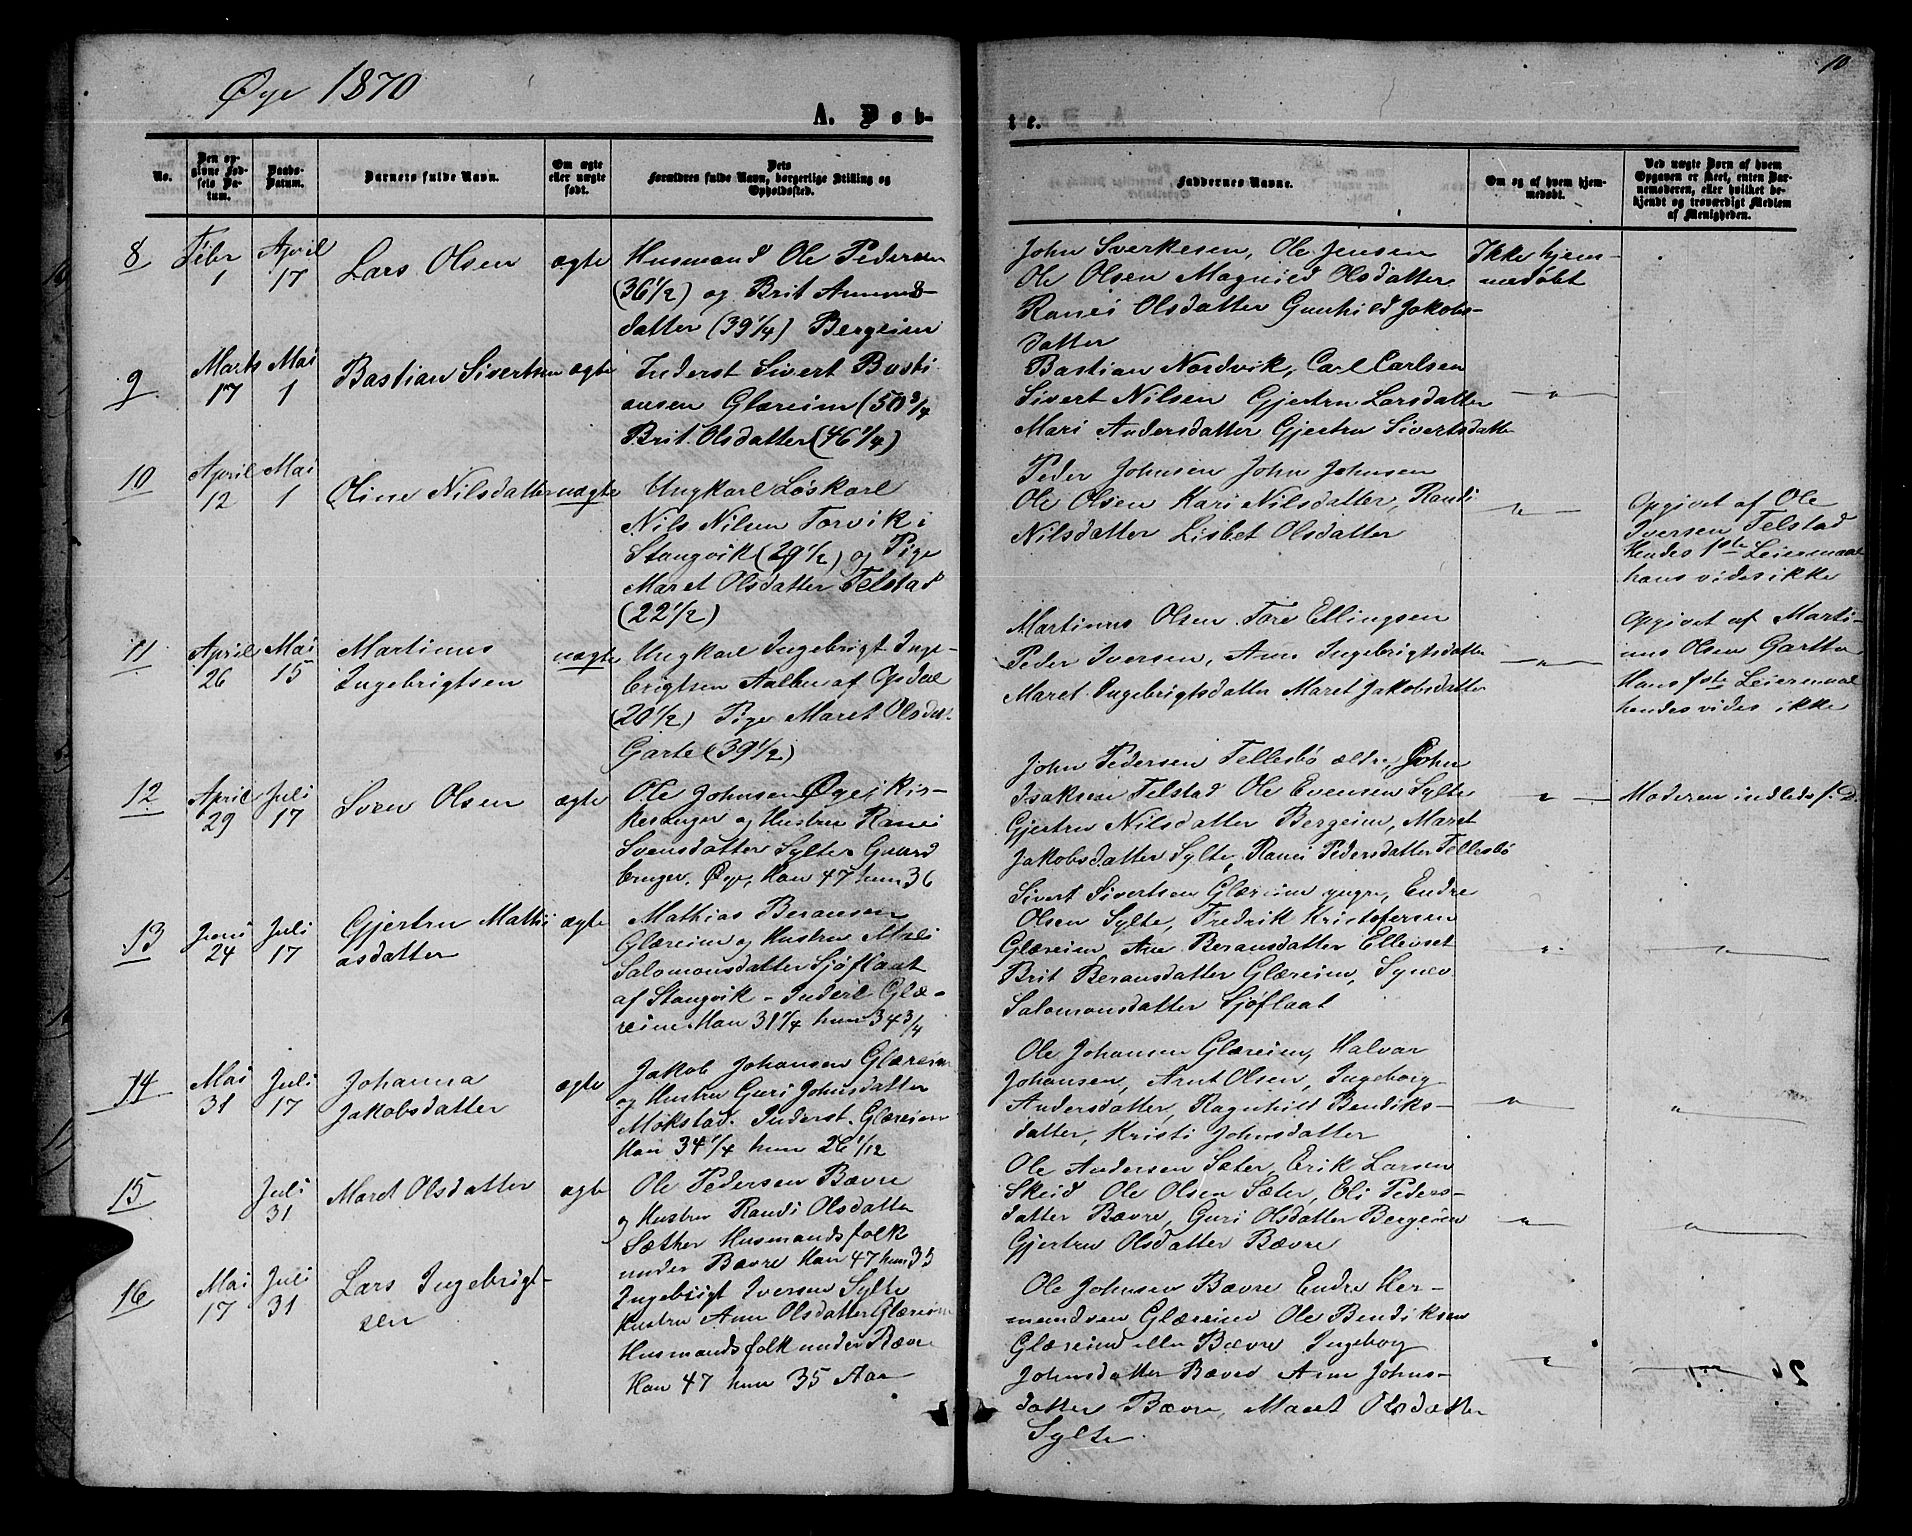 Øye 1870
10
A. Døb-
te.
No.
Den opgivne Fødsels Datum.
Daabs-Datum.
Barnets fulde Navn.
Om ægte eller uægte født.
Forældres fulde Navn, borgerlige Stilling og Opholdssted.
Faddernes Navne.
Om og af hvem hjemmedøbt.
Ved uægte Børn af hvem Opgaven er skeet, enten Barnemoderen, eller hvilket bekjendt og troværdigt Medlem af Menigheden.
8
Febr 1
April 17
Lars Olsen
ægte
Husmand Ole Pedersen
(36 1/2) og Brit Amunds-
datter (39 1/4) Bergeim
John Sverkesen, Ole Jensen
Ole Olsen Magnild Olsdatter
Ranei Olsdatter Gunhild Jakobs-
datter
Ikke hjem-
medøbt
9
Marts 17
Mai 1
Bastian Sivertsen
ægte
Inderst Sivert Basti
ansen Glæreim (50 3/4
Brit Olsdatter (46 1/4)
Bastian Nordvik, Carl Carlsen
Sivert Nilsen Gjertru Larsdatter
Mari Andersdatter Gjertru Sivertsdatte
— " —
10
April 12
Mai 1
Oline Nilsdatter
uægte
Ungkarl Løskarl
Nils Nilsen Torvik i
Stangvik (29 1/2) og Pige
Maret Olsdatter Telstad
(22 1/2)
Peder Johnsen John Johnsen
Ole Olsen Kari Nilsdatter, Randi
Nilsdatter Lisbet Olsdatter
— " —
Opgivet af Ole
Iversen Telstad
Hendes 1ste Leiermaal
hans vides ikke
11
April 26
Mai 15
Martinus
Ingebrigtsen
uægte
Ungkarl Ingebrigt Inge-
brigtsen Aalbu af Opdal
(20 1/2) Pige Maret Olsdat.
Garte (39 1/2)
Martinus Olsen Tore Ellingsen
Peder Iversen, Ane Ingebrigtsdatter
Maret Ingebrigtsdatter Maret Jakobsdatter
— " —
Opgivet af Marti-
nus Olsen Garte
Hans første Leiermaal
hendes vides ikke
12
April 29
Juli 17
Sven Olsen
ægte
Ole Johnsen Øye, Kir-
kesanger og Hustru Ranei
Svensdatter Sylte Gaard
bruger, Øye, Han 47 hun 36
John Pedersen Tellesbø ældre, John
Isaksen Telstad Ole Evensen Sylte
Gjertru Nilsdatter Bergeim, Maret
Jakobsdatter Sylte, Ranei Pedersdatter Tellesbø
" —
Moderen indleds f. D.
13
Juni 24
Juli 17
Gjertru Mathi
asdatter
ægte
Mathias Beransen
Glæreim og Hustru Mali
Salomonsdatter Sjøflaat
af Stangvik – Inderst Glæ-
reim Han 31 1/4 hun 34 3/4
Sivert Sivertsen Glæreim yngre, Endre
Olsen Sylte, Fredrik Kristofersen
Glæreim, Ane Beransdatter Ellevset
Brit Beransdatter Glæreim, Synev
Salomonsdatter Sjøflaat
"
— " —
14
Mai 31
Juli 17
Johanna
Jakobsdatter
ægte
Jakob Johansen Glæreim
og Hustru Guri Johnsdatter
Mokstad. Inderst. Glæreim
Han 34 1/4 hun 26 1/12
Ole Johansen Glæreim, Halvar
Johansen, Arnt Olsen, Ingeborg
Andersdatter, Ragnhild Bendiks-
datter, Kristi Johnsdatter
— " —
— " —
15
Juli 31
Maret Olsdatter
ægte
Ole Pedersen Bævre
og Hustru Randi Olsdatter
Sæther Husmandsfolk
under Bævre Han 47 hun 35
Ole Andersen Sæter, Erik Larsen
Skeid Ole Olsen Sæter, Eli Peders-
datter Bævre, Guri Olsdatter Bergeim
Gjertru Olsdatter Bævre
— " —
— " —
16
Mai 17
Juli 31
Lars Ingebrigt-
sen
Ingebrigt Iversen Sylte
Hustru Ane Olsdatter Glæreim
Husmandsfolk under Bævre
Han 47 hun 35 Aar
Ole Johnsen Bævre Endre Her-
mundsen Glæreim Ole Bendiksen
Glæreim eller Bævre Ingeborg
Johnsdatter Bævre Ane Johns-
datter Bævre, Maret Olsdatter
Sylte
— " —
— " —